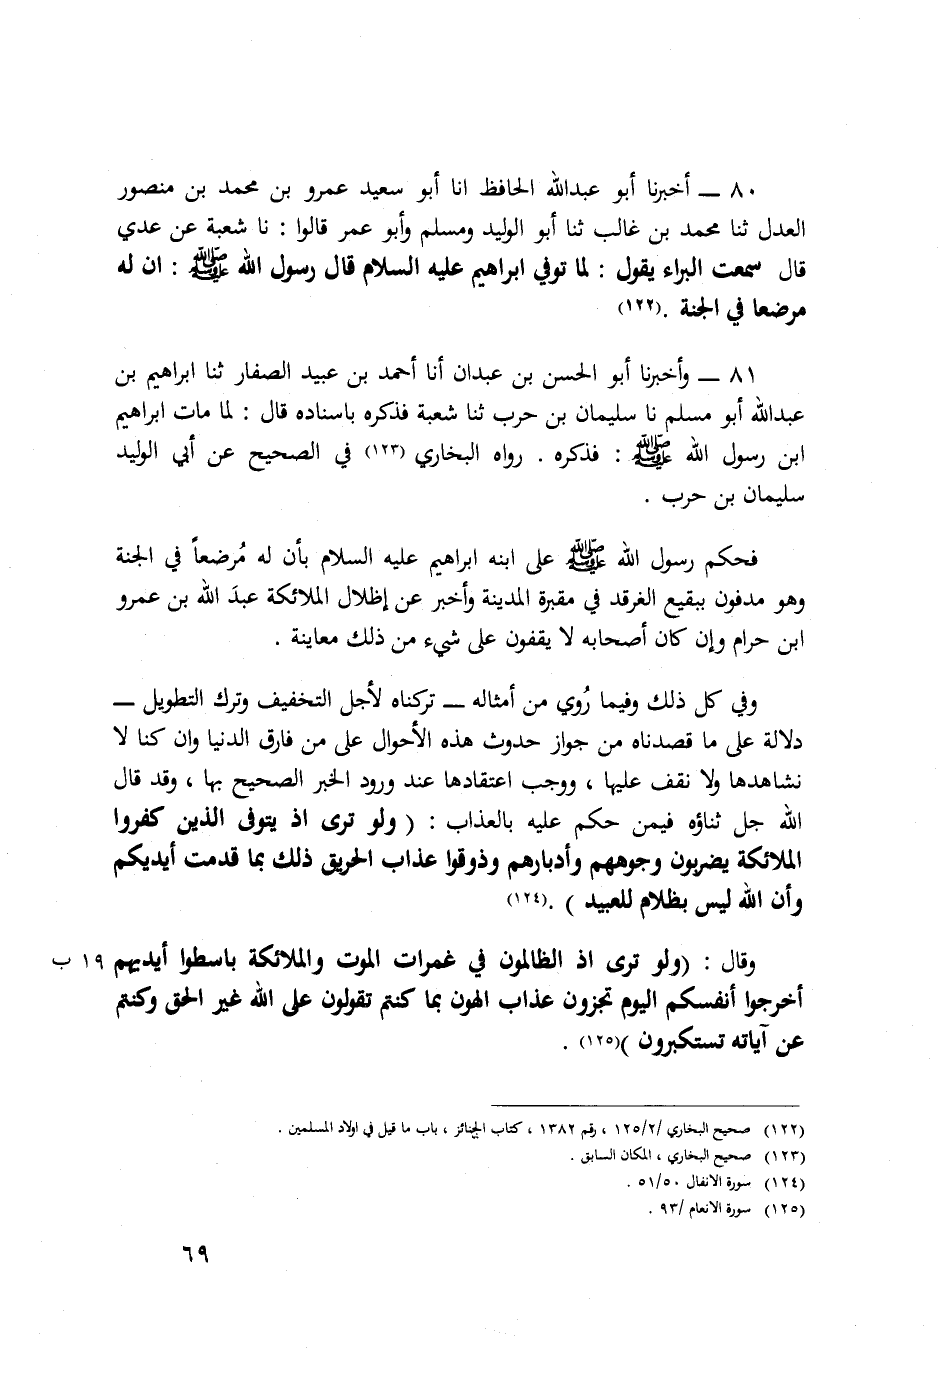 ٨٠ — أخبرنا أبو عبدالله الحافظ انا أبو سعيد عمرو بن محمد بن منصور
العدل ثنا محمد بن غالب ثنا أبو الوليد ومسلم وأبو عمر قالوا : نا شعبة عن عدي
قال سمعت البراء يقول : لما توفي ابراهيم عليه السلام قال رسول الله ﷺ : ان له
مرضعا في الجنة .(١٢٢)
٨١ — وأخبرنا أبو الحسن بن عبدان أنا أحمد بن عبيد الصفار ثنا ابراهيم بن
عبدالله أبو مسلم نا سليمان بن حرب ثنا شعبة فذكره باسناده قال : لما مات ابراهيم
ابن رسول الله ﷺ : فذكره . رواه البخاري (١٢٣) في الصحيح عن أبي الوليد
سليمان بن حرب .
فحكم رسول الله ﷺ على ابنه ابراهيم عليه السلام بأن له مُرضعاً في الجنة
وهو مدفون ببقيع الغرقد في مقبرة المدينة وأخبر عن إظلال الملائكة عبدَ الله بن عمرو
ابن حرام وإن كان أصحابه لا يقفون على شيء من ذلك معاينة .
وفي كل ذلك وفيما رُوي من أمثاله — تركناه لأجل التخفيف وترك التطويل —
دلالة على ما قصدناه من جواز حدوث هذه الأحوال على من فارق الدنيا وان كنا لا
نشاهدها ولا نقف عليها ، ووجب اعتقادها عند ورود الخبر الصحيح بها ، وقد قال
الله جل ثناؤه فيمن حكم عليه بالعذاب : ( ولو ترى اذ يتوفى الذين كفروا
الملائكة يضربون وجوههم وأدبارهم وذوقوا عذاب الحريق ذلك بما قدمت أيديكم
وأن الله ليس بظلام للعبيد ) .(١٢٤)
وقال : (ولو ترى اذ الظالمون في غمرات الموت والملائكة باسطوا أيديهم ١٩ ب
أخرجوا أنفسكم اليوم تجزون عذاب الهون بما كنتم تقولون على الله غير الحق وكنتم
عن آياته تستكبرون )(١٢٥) .
(١٢٢) صحيح البخاري /١٢٥/٢ ، رقم ١٣٨٢ ، كتاب الجنائز ، باب ما قيل في اولاد المسلمين .
(١٢٣) صحيح البخاري ، المكان السابق .
(١٢٤) سورة الانفال ٥١/٥٠ .
(١٢٥) سورة الانعام /٩٣ .
٦٩